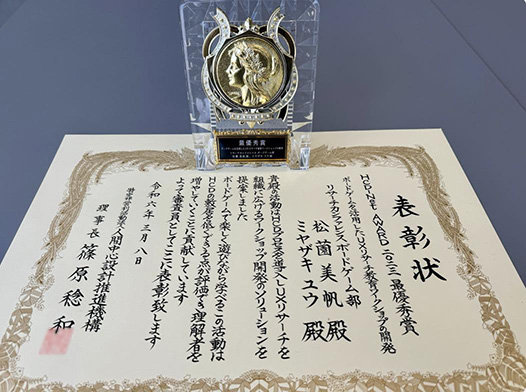 最優秀賞
表彰状
HCD-Net AWARD 2023 最優秀賞
ボードゲームを活用したUXリサーチ教育ワークショップの開発
リサーチカンファレンス ボードゲーム部
松薗 美帆 殿
ミヤザキ ユウ 殿
貴殿の活動はHCDプロセスを導入しUXリサーチを
組織に広げるワークショップ開発のソリューションを
提案しました
ボードゲームで楽しく遊びながら学べるこの活動は
HCDの敷居を低くできる点が評価でき理解者を
増やしていくことに貢献しています
よって審査員としてここに表彰致します
令和六年三月八日
特定非営利活動法人 人間中心設計推進機構
理事長 篠原 稔和